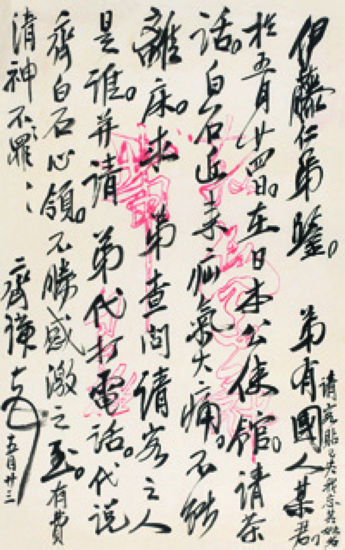 伊藤仁弟鑒。弟有國人某君
請客貼已失我忘其姓名
於五月廿四日。在日本公使館。請茶
話。白石近来疝氣大痛。不能
離床。求 弟查問請客之人
是誰。并請 弟代打電話。代說
齊白石心領。不勝感激之至。有費
清神不罪〻
齊璜
五月廿三